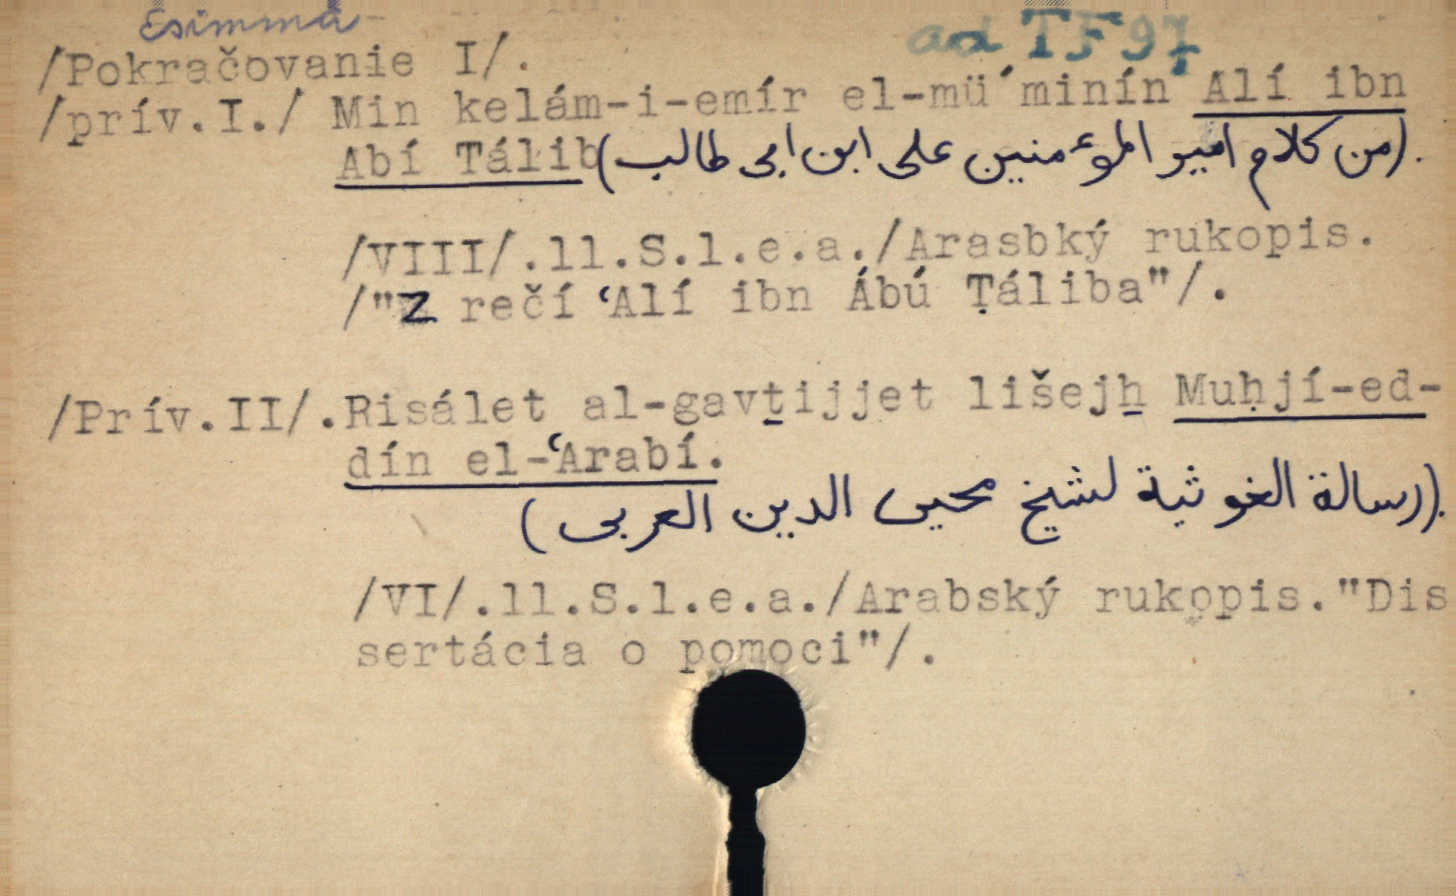 Esimmä
ad TF 97
/Pokračovanie I/.
/prív.I./ Min kelám-i-emír el-mü´minín Alí ibn
Abí Tálib (من كلام امير الموءمنين على ابن ابى طالب).
/VIII/.ll.S.l.e.a./Arasbký rukopis.
/"Z rečí ʿAlí ibn Ábú Ṭáliba"/.
/Prív.II/.Risálet al-gavṯijjet lišejẖ Muḥjí-ed-
dín el-ʿArabí.
(رسالة الغوثية لشيخ محيى الدين العربى).
/VI/.ll.S.l.e.a./Arabský rukopis."Dis
sertácia o pomoci"/.